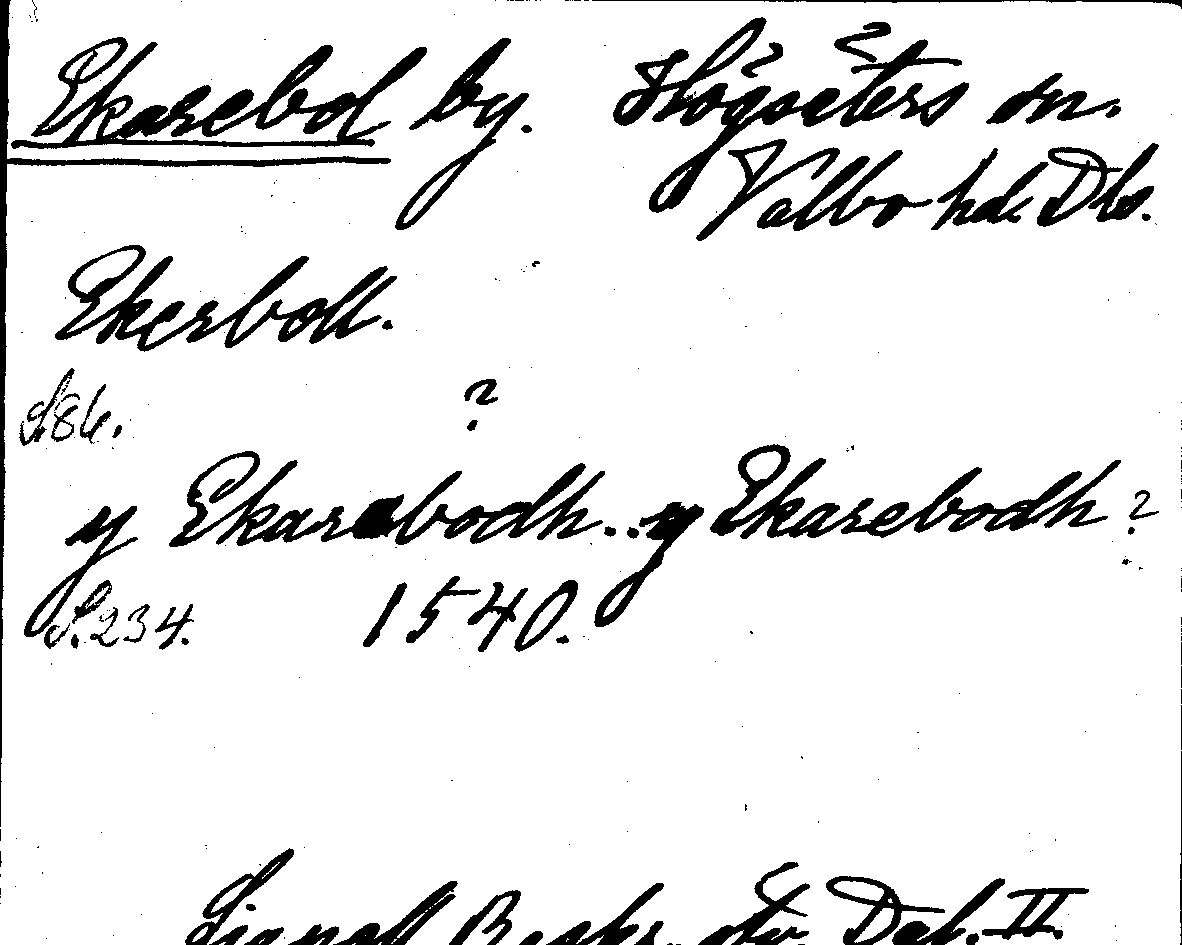 Ekarebol by. Högsäters sn.
Valbo hd. Dls.
Ekerboll.
S. 86. ?
y Ekarebodh... y Ekarebodh?
S. 234. 1540.
Lignell Beskr. öfv. Dal. II.